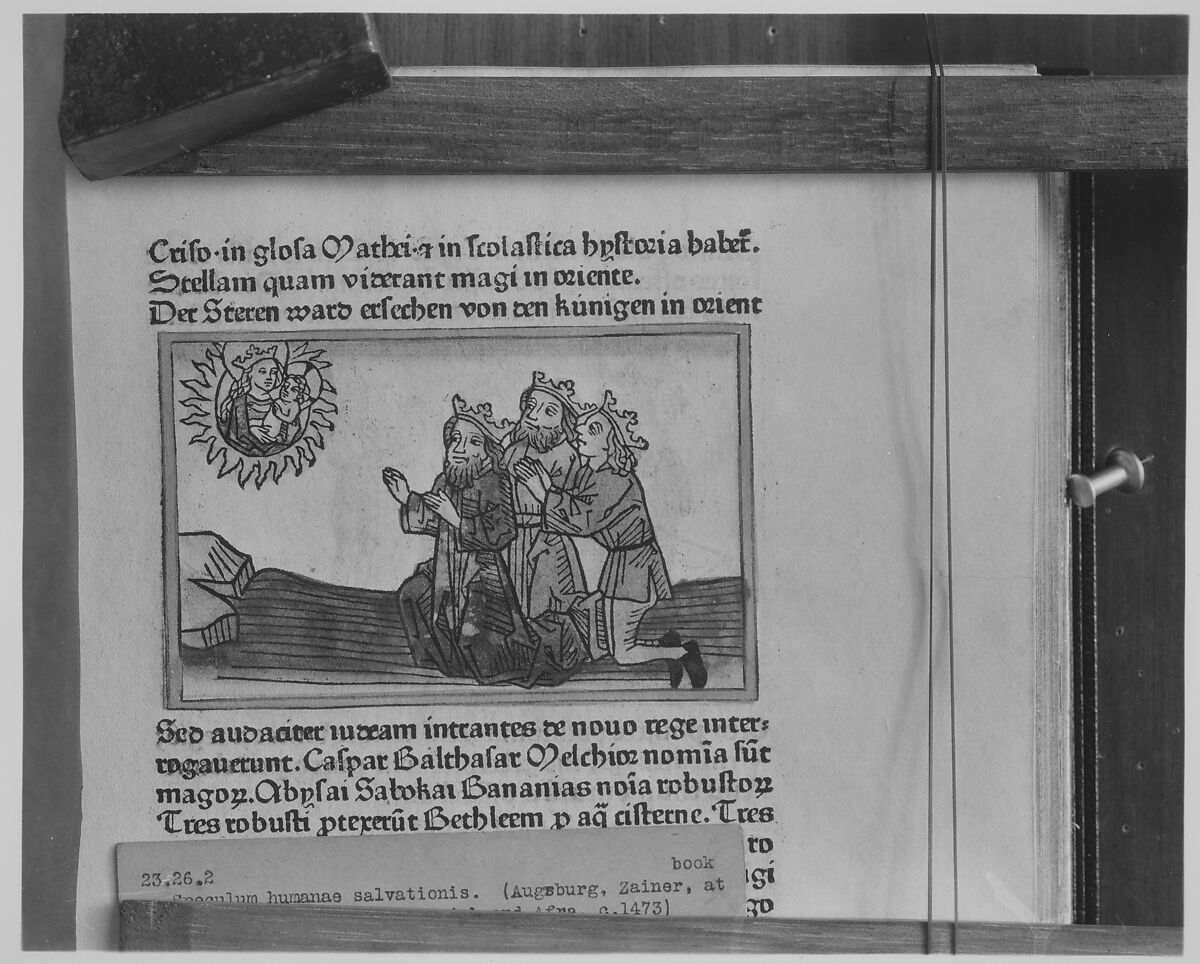 Criso·in glosa Mathei·⁊ in scolastica hystoria habet̄.
Stellam quam viderant magi in oriente.
Der Steren ward ersechen von den kúnigen in orient
Sed audaciter iudeam intrantes de nouo rege inter⸗
rogauerunt. Caspar Balthasar Melchior nomīa sūt
magoꝝ. Abysai Sabokai Bananias noīa robustoꝝ
Tres robusti ꝓtexerūt Bethleem ꝓ aq̄ cisterne. Tres
ro
gi
go
23.26.2
book
Speculum humanae salvationis. (Augsburg, Zainer, at
and Afra, c.1473)